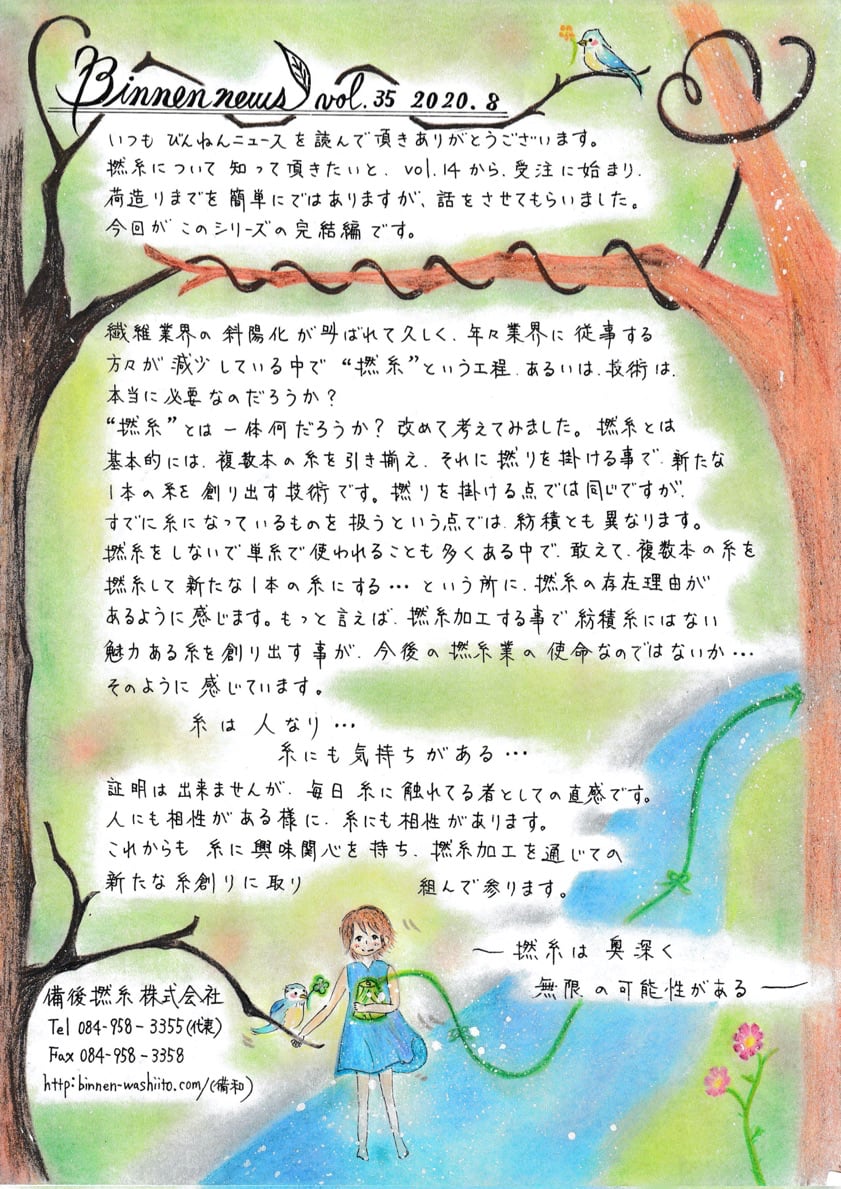 Binnen news vol. 35 2020. 8
いつも びんねんニュースを読んで頂きありがとうございます。
撚糸について 知って頂きたいと、vol.14から、受注に始まり、
荷造りまでを簡単にではありますが、話をさせてもらいました。
今回が このシリーズの完結編です。
繊維業界の斜陽化が叫ばれて久しく、年々業界に従事する
方々が減少している中で “撚糸”という工程、あるいは、技術は、
本当に必要なのだろうか？
“撚糸”とは一体何だろうか？改めて考えてみました。撚糸とは
基本的には、複数本の糸を引き揃え、それに撚りを掛ける事で、新たな
1本の糸を創り出す技術です。撚りを掛ける点では同じですが、
すでに糸になっているものを扱うという点では、紡積とも異なります。
撚糸をしないで単糸で使われることも多くある中で、敢えて、複数本の糸を
撚糸して新たな1本の糸にする…という所に、撚糸の存在理由が
あるように感じます。もっと言えば、撚糸加工する事で紡積糸にはない
魅力ある糸を創り出す事が、今後の撚糸業の使命なのではないか…
そのように感じています。
糸は人なり…
糸にも気持ちがある…
証明は出来ませんが、毎日糸に触れてる者としての直感です。
人にも相性がある様に、糸にも相性があります。
これからも 糸に興味関心を持ち、撚糸加工を通じての
新たな糸創りに取り 組んで参ります。
― 撚糸は奥深く
無限の可能性がある ―
備後撚糸株式会社
Tel 084-958-3355(代表)
Fax 084-958-3358
http:binnen-washiito.com/(備和)